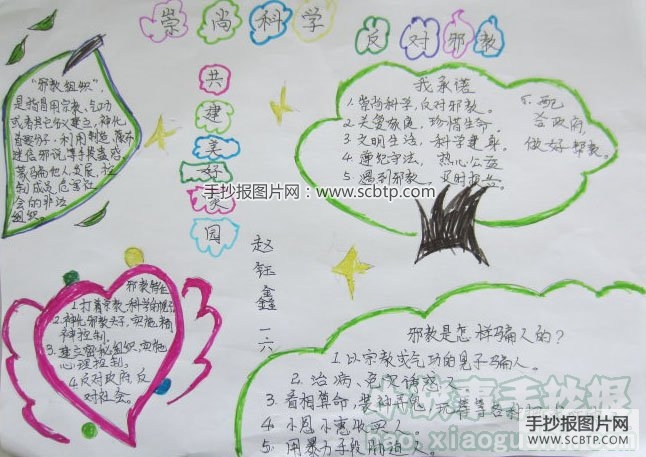 崇尚科学
反对邪教
共建美好家园
"邪教组织",
是指冒用宗教、气功
或者其它名义建立,神化
首要分子,利用制造、散布
迷信邪说等手段蛊惑、
蒙骗他人,发展、控
制成员,危害社
会的非法
组织。
我承诺
1. 崇尚科学,反对邪教。
2. 关爱家庭,珍惜生命。
3. 文明生活,科学健身。
4. 遵纪守法,热心公益
5. 遇到邪教,及时报告。
配
合政府,
做好帮教。
手抄报图片网:www.scbtp.com
赵钰鑫一六
邪教特征
1. 打着宗教、科学的幌子
2. 神化邪教头子,实施精
神控制。
3. 建立秘密组织,实施
心理控制。
4. 反对政府,反
对社会。
邪教是怎样骗人的?
1. 以宗教或气功的幌子骗人。
2. 治病、免灾诱惑人
3. 看相算命,装神弄鬼
4. 小恩小惠收买人。
5. 用暴力手段
手抄报图片网
WWW.SCBTP.COM